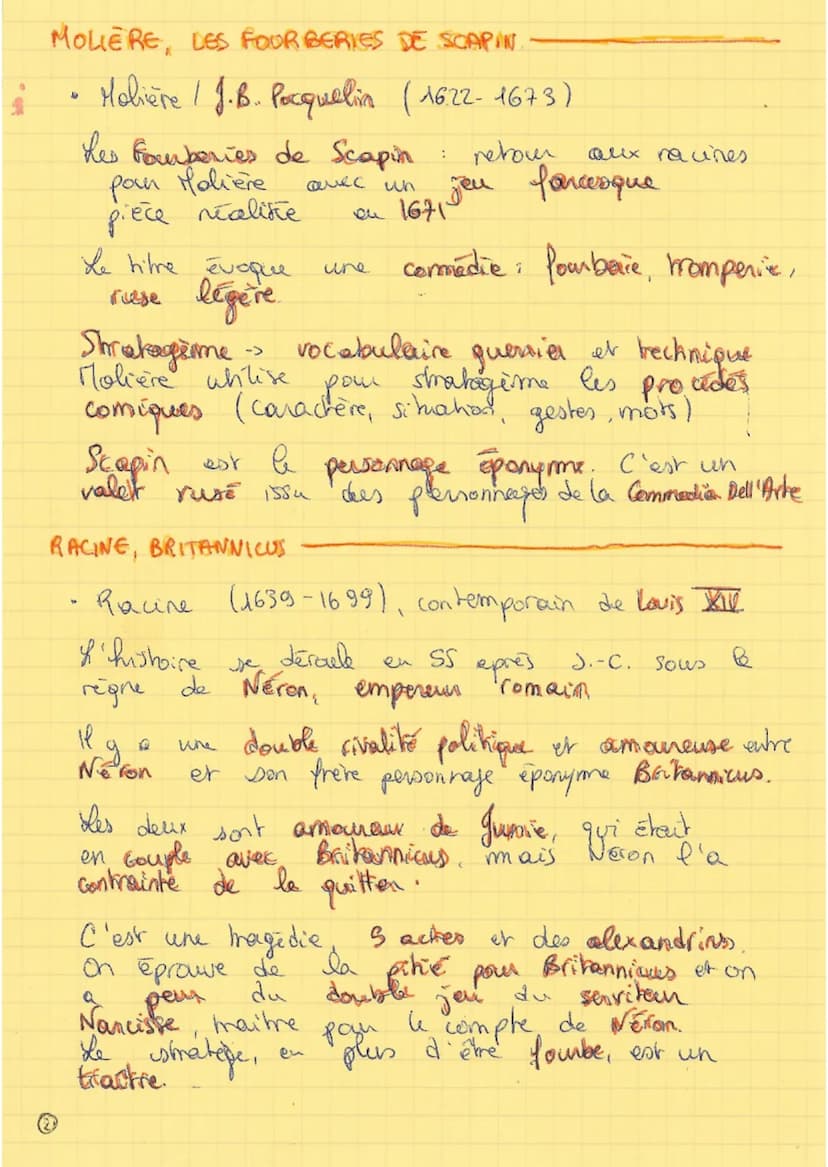 MOLIÈRE, LES FOURBERIES DE SCAPIN
• Molière / J.B. Pocquelin (1622-1673)
Les Fourberies de Scapin : retour aux racines
pour Molière avec un jeu farcesque
pièce réaliste en 1671
Le titre évoque une comédie : fourberie, tromperie,
ruse légère
Stratagème -> vocabulaire guerrier et technique
Molière utilise pour stratagème les procédés
comiques (caractère, situation, gestes, mots)
Scapin est le personnage éponyme. C'est un
valet rusé issu des personnages de la Commedia Dell'Arte
RACINE, BRITANNICUS
• Racine (1639-1699), contemporain de Louis XIV
L'histoire se déroule en 55 après J.-C. sous le
règne de Néron, empereur romain
Il y a une double rivalité politique et amoureuse entre
Néron et son frère personnage éponyme Britannicus.
Les deux sont amoureux de Junie, qui était
en couple avec Britannicus, mais Néron l'a
contrainte de le quitter.
C'est une tragédie, 5 actes et des alexandrins.
On éprouve de la pitié pour Britannicus et on
a peur du double jeu du serviteur
Narcisse, traître pour le compte de Néron.
Le stratège, en plus d'être fourbe, est un
traître.
2